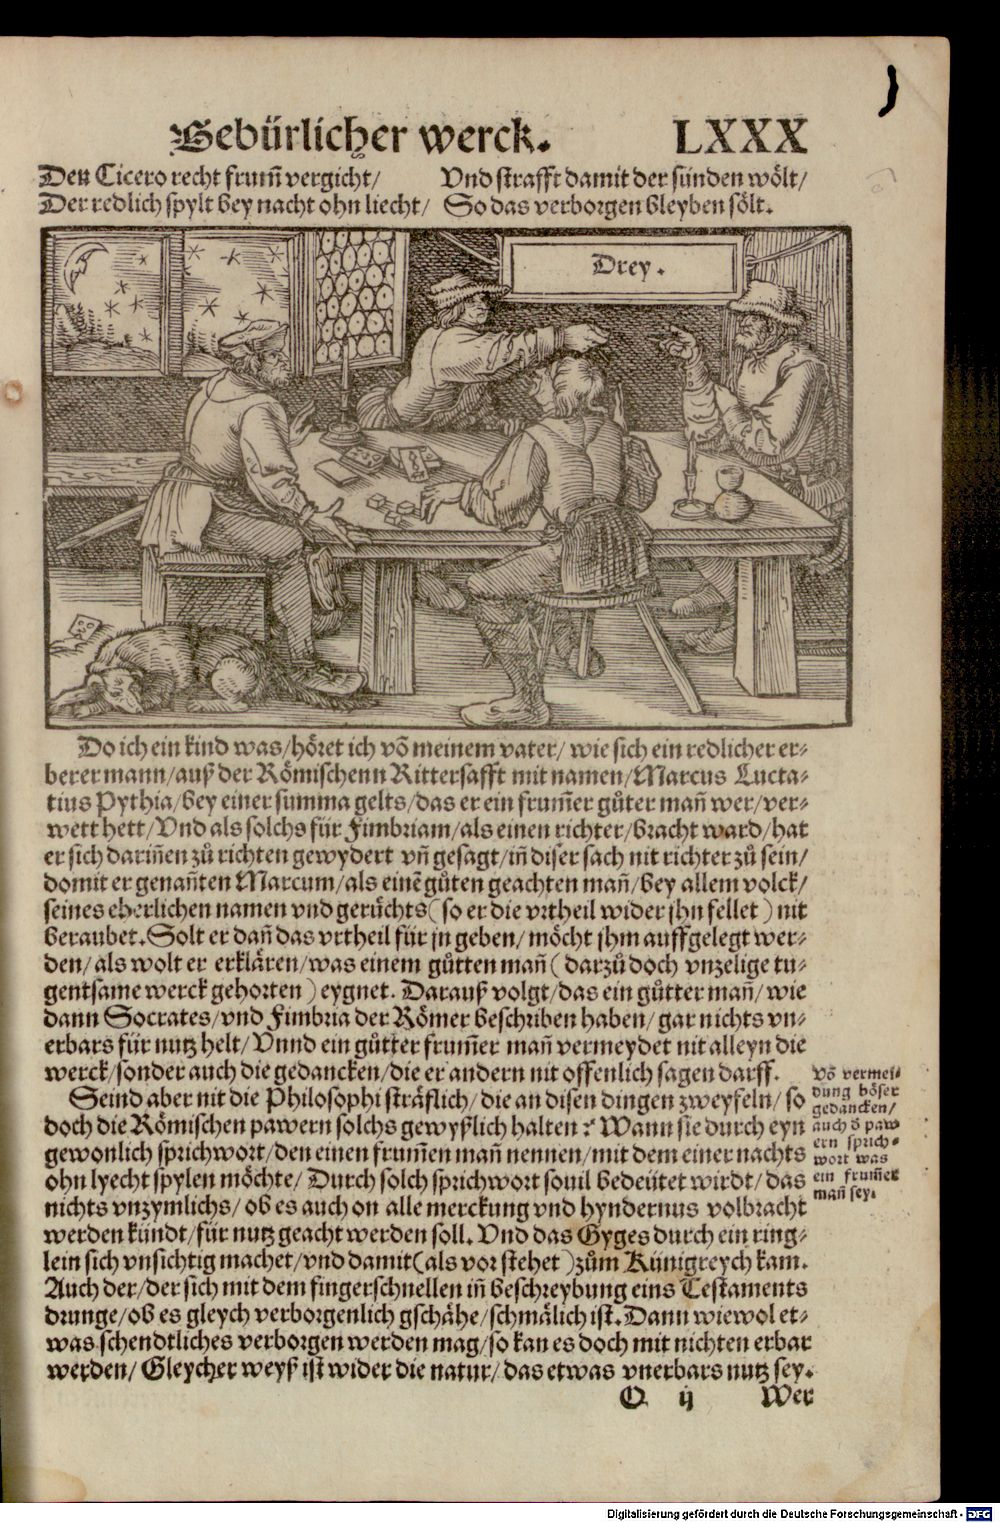 Gebürlicher werck. LXXX
Den Cicero recht frum̄ vergicht/
Der redlich spylt bey nacht ohn liecht/
Vnd strafft damit der sünden wölt/
So das verborgen bleyben sölt.
Drey.
Do ich ein kind was/höret ich vō meinem vater/ wie sich ein redlicher er-
berer mann/auß der Römischenn Rittersafft mit namen/Marcus Lucta-
tius Pythia/bey einer summa gelts/das er ein frum̄er gůter man̄ wer/ver-
wett hett/Vnd als solchs für Fimbriam/als einen richter/bracht ward/hat
er sich darin̄en zů richten gewydert vn̄ gesagt/in̄ diser sach nit richter zů sein/
domit er genan̄ten Marcum/als einē gůten geachten man̄/bey allem volck/
seines eherlichen namen vnd gerüchts(so er die vrtheil wider jhn fellet) nit
beraubet. Solt er dan̄ das vrtheil für jn geben/ möcht jhm auffgelegt wer-
den/als wolt er erklären/was einem gůtten man̄(darzů doch vnzelige tu-
gentsame werck gehorten) eygnet. Darauß volgt/das ein gůtter man̄/wie
dann Socrates/vnd Fimbria der Römer beschriben haben/ gar nichts vn-
erbars für nutz helt/Vnnd ein gůtter frum̄er man̄ vermeydet nit alleyn die
werck/sonder auch die gedancken/die er andern nit offenlich sagen darff.
Seind aber nit die Philosophi sträflich/die an disen dingen zweyfeln/ so
doch die Römischen pawern solchs gewyßlich halten? Wann sie durch eyn
gewonlich sprichwort/den einen frum̄en man̄ nennen/mit dem einer nachts
ohn lyecht spylen möchte/ Durch solch sprichwort souil bedeütet wirdt/das
nichts vnzymlichs/ ob es auch on alle merckung vnd hyndernus volbracht
werden kündt/für nutz geacht werden soll. Vnd das Gyges durch ein ring-
lein sich vnsichtig machet/vnd damit(als vor stehet)zům Künigreych kam.
Auch der/der sich mit dem fingerschnellen in̄ beschreybung eins Testaments
drunge/ob es gleych verborgenlich gschähe/schmälich ist. Dann wiewol et-
was schendtliches verborgen werden mag/so kan es doch mit nichten erbar
werden/ Gleycher weyß ist wider die natur/das etwas vnerbars nutz sey.
Vō vermei-
dung böser
gedancken/
auch d̄ paw
ern sprich-
wort was
ein frum̄er
man̄ sey.
O ij Wer
Digitalisierung gefördert durch die Deutsche Forschungsgemeinschaft - DFG